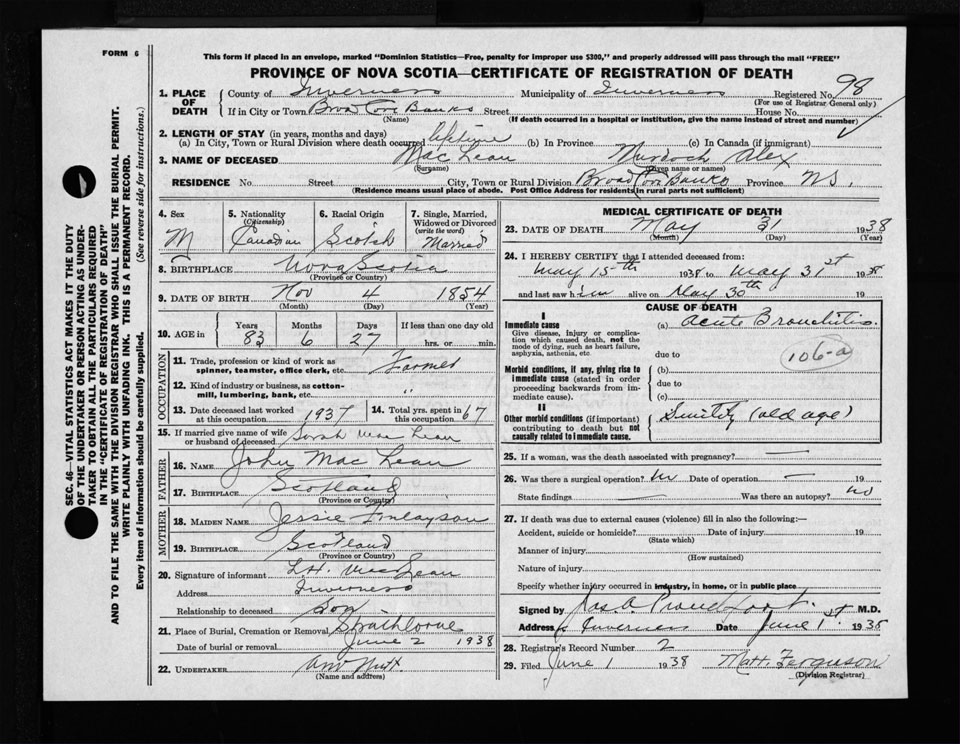 FORM 6
This form if placed in an envelope, marked "Dominion Statistics—Free, penalty for improper use $300," and properly addressed will pass through the mail "FREE"
PROVINCE OF NOVA SCOTIA—CERTIFICATE OF REGISTRATION OF DEATH
SEC. 46—VITAL STATISTICS ACT MAKES IT THE DUTY
OF THE UNDERTAKER OR PERSON ACTING AS UNDER-
TAKER TO OBTAIN ALL THE PARTICULARS REQUIRED
IN THE "CERTIFICATE OF REGISTRATION OF DEATH"
AND TO FILE THE SAME WITH THE DIVISION REGISTRAR WHO SHALL ISSUE THE BURIAL PERMIT.
WRITE PLAINLY WITH UNFADING INK. THIS IS A PERMANENT RECORD.
Every item of information should be carefully supplied. (See reverse side for instructions.)
1. PLACE OF DEATH County of Inverness Municipality of Inverness Registered No. 98
(For use of Registrar General only)
If in City or Town Broad Cove Banks Street House No.
(Name) (If death occurred in a hospital or institution, give the name instead of street and number)
2. LENGTH OF STAY (in years, months and days)
(a) In City, Town or Rural Division where death occurred lifetime (b) In Province (c) In Canada (if immigrant)
3. NAME OF DECEASED Mac Lean Murdoch Alex
(Surname) (Given name or names)
RESIDENCE No. Street City, Town or Rural Division Broad Cove Banks Province NS.
(Residence means usual place of abode. Post Office Address for residents in rural parts not sufficient)
4. Sex M
5. Nationality (Citizenship) Canadian
6. Racial Origin Scotish
7. Single, Married, Widowed or Divorced (write the word) Married
8. BIRTHPLACE Nova Scotia
(Province or Country)
9. DATE OF BIRTH Nov 4 1854
(Month) (Day) (Year)
10. AGE in Years 83 Months 6 Days 27 If less than one day old hrs. or min.
OCCUPATION
11. Trade, profession or kind of work as spinner, teamster, office clerk, etc. Farmer
12. Kind of industry or business, as cotton-mill, lumbering, bank, etc. "
13. Date deceased last worked at this occupation 1937
14. Total yrs. spent in this occupation 67
15. If married give name of wife or husband of deceased Sarah Mac Lean
FATHER
16. NAME John Mac Lean
17. BIRTHPLACE Scotland
(Province or Country)
MOTHER
18. MAIDEN NAME Jessie Finlayson
19. BIRTHPLACE Scotland
(Province or Country)
20. Signature of informant L.H. Mac Lean
Address Inverness
Relationship to deceased Son
21. Place of Burial, Cremation or Removal Strathlorne
Date of burial or removal June 2 1938
22. UNDERTAKER
(Name and address)
MEDICAL CERTIFICATE OF DEATH
23. DATE OF DEATH May 31 1938
(Month) (Day) (Year)
24. I HEREBY CERTIFY that I attended deceased from:
May 15th 1938 to May 31st 1938
and last saw him alive on May 30th 19
CAUSE OF DEATH
I
Immediate cause (a) Acute Bronchitis.
Give disease, injury or complication which caused death, not the mode of dying, such as heart failure, asphyxia, asthenia, etc.
due to 106-a
Morbid conditions, if any, giving rise to immediate cause (stated in order proceeding backwards from immediate cause).
(b)
due to
(c)
II
Other morbid conditions (if important) contributing to death but not causally related to immediate cause. Senility (old age)
25. If a woman, was the death associated with pregnancy? —
26. Was there a surgical operation? No Date of operation — 19
State findings — Was there an autopsy? no
27. If death was due to external causes (violence) fill in also the following:—
Accident, suicide or homicide? Date of injury 19
(State which)
Manner of injury
(How sustained)
Nature of injury
Specify whether injury occurred in industry, in home, or in public place
Signed by Jas. A. Proudfoot. M.D.
Address Inverness Date June 1st 1938
28. Registrar's Record Number 2
29. Filed June 1 1938 Matt. Ferguson
(Division Registrar)